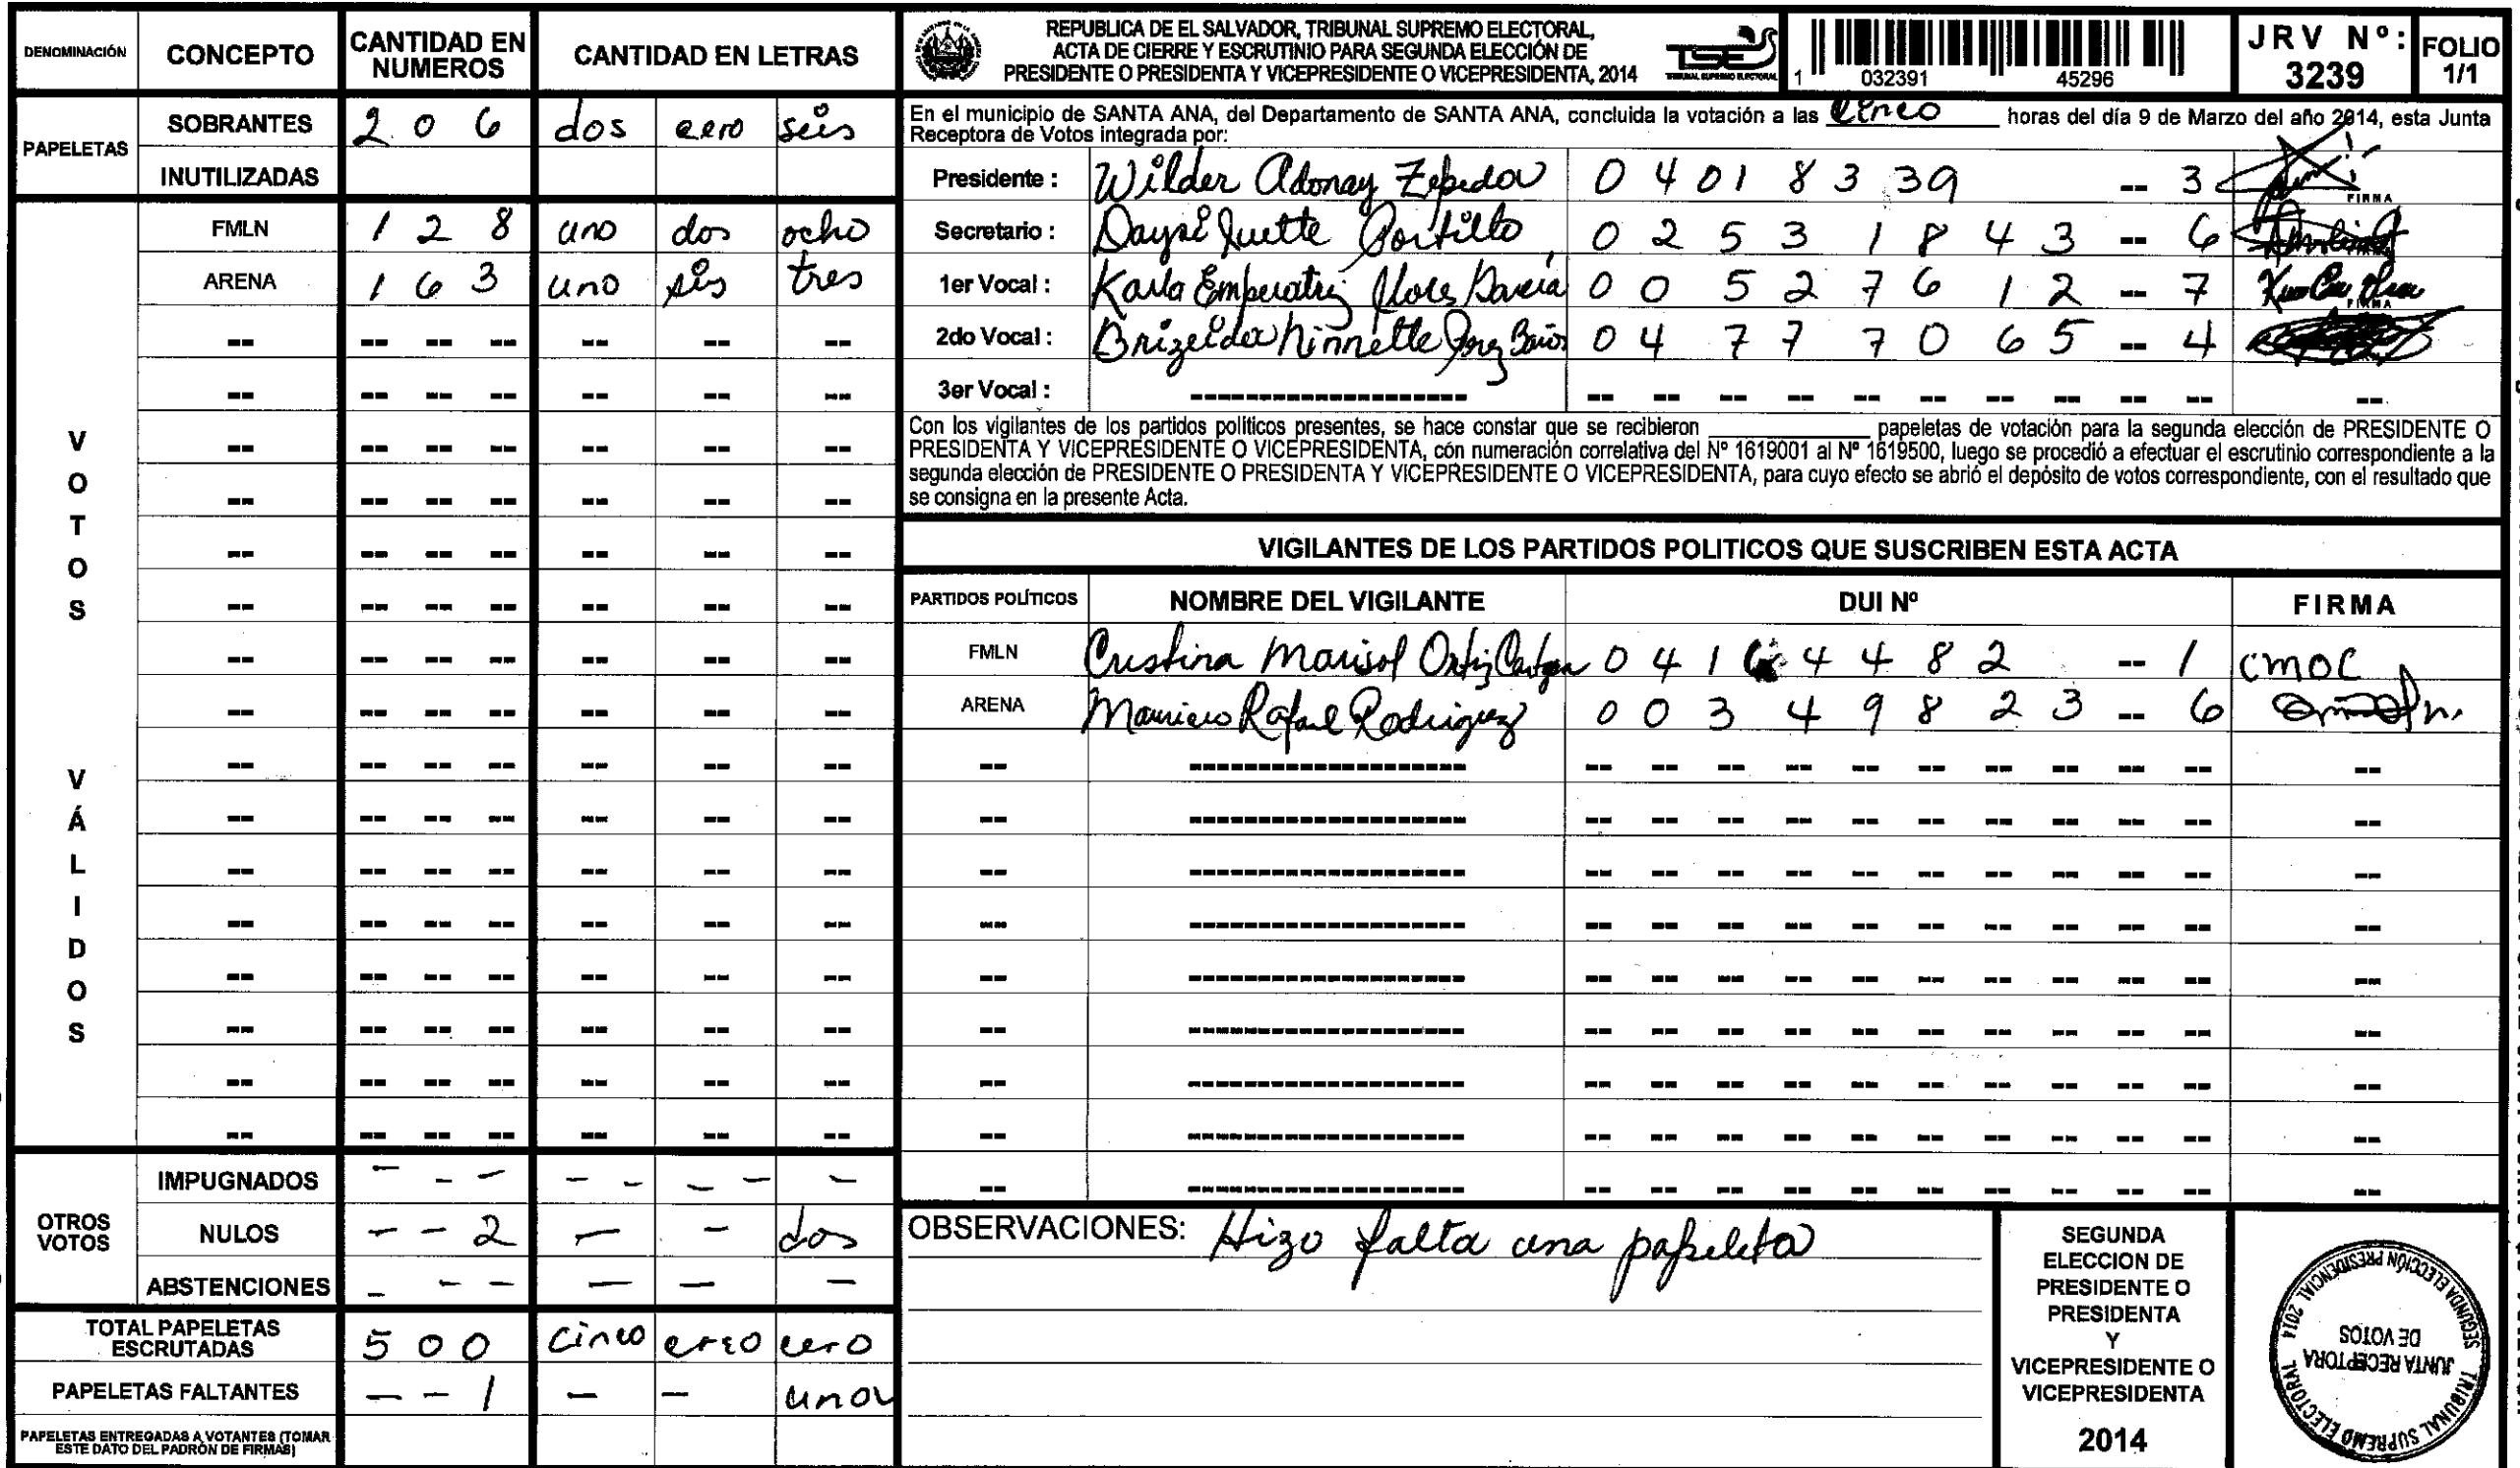 DENOMINACIÓN CONCEPTO CANTIDAD EN NUMEROS CANTIDAD EN LETRAS
PAPELETAS SOBRANTES 2 0 6 dos cero seis
INUTILIZADAS
VOTOS VÁLIDOS
FMLN 1 2 8 uno dos ocho
ARENA 1 6 3 uno seis tres
OTROS VOTOS
IMPUGNADOS - - - - - - - -
NULOS - - 2 - - dos
ABSTENCIONES - - - - - -
TOTAL PAPELETAS ESCRUTADAS 5 0 0 cinco cero cero
PAPELETAS FALTANTES - - 1 - - uno
PAPELETAS ENTREGADAS A VOTANTES (TOMAR ESTE DATO DEL PADRÓN DE FIRMAS)
REPUBLICA DE EL SALVADOR, TRIBUNAL SUPREMO ELECTORAL,
ACTA DE CIERRE Y ESCRUTINIO PARA SEGUNDA ELECCIÓN DE
PRESIDENTE O PRESIDENTA Y VICEPRESIDENTE O VICEPRESIDENTA, 2014
TSE
TRIBUNAL SUPREMO ELECTORAL
1 032391 45296
JRV Nº: 3239
FOLIO 1/1
En el municipio de SANTA ANA, del Departamento de SANTA ANA, concluida la votación a las cinco horas del día 9 de Marzo del año 2014, esta Junta
Receptora de Votos integrada por:
Presidente : Wilder Adonay Zepeda 0 4 0 1 8 3 3 9 -- 3 FIRMA
Secretario : Daysi Portillo 0 2 5 3 1 8 4 3 -- 6
1er Vocal : Karla Emperatriz 0 0 5 2 7 6 1 2 -- 7 FIRMA
2do Vocal : Brizeida Ninnette 0 4 7 7 7 0 6 5 -- 4
3er Vocal :
Con los vigilantes de los partidos políticos presentes, se hace constar que se recibieron papeletas de votación para la segunda elección de PRESIDENTE O
PRESIDENTA Y VICEPRESIDENTE O VICEPRESIDENTA, cón numeración correlativa del Nº 1619001 al Nº 1619500, luego se procedió a efectuar el escrutinio correspondiente a la
segunda elección de PRESIDENTE O PRESIDENTA Y VICEPRESIDENTE O VICEPRESIDENTA, para cuyo efecto se abrió el depósito de votos correspondiente, con el resultado que
se consigna en la presente Acta.
VIGILANTES DE LOS PARTIDOS POLITICOS QUE SUSCRIBEN ESTA ACTA
PARTIDOS POLÍTICOS NOMBRE DEL VIGILANTE DUI Nº FIRMA
FMLN Cristina Marisol Ortiz 0 4 1 6 4 4 8 2 -- 1 CMOC
ARENA Mauricio Rafael Rodriguez 0 0 3 4 9 8 2 3 -- 6
OBSERVACIONES: Hizo falta una papeleta
SEGUNDA
ELECCION DE
PRESIDENTE O
PRESIDENTA
Y
VICEPRESIDENTE O
VICEPRESIDENTA
2014
SEGUNDA ELECCIÓN PRESIDENCIAL 2014
JUNTA RECEPTORA
DE VOTOS
TRIBUNAL SUPREMO ELECTORAL